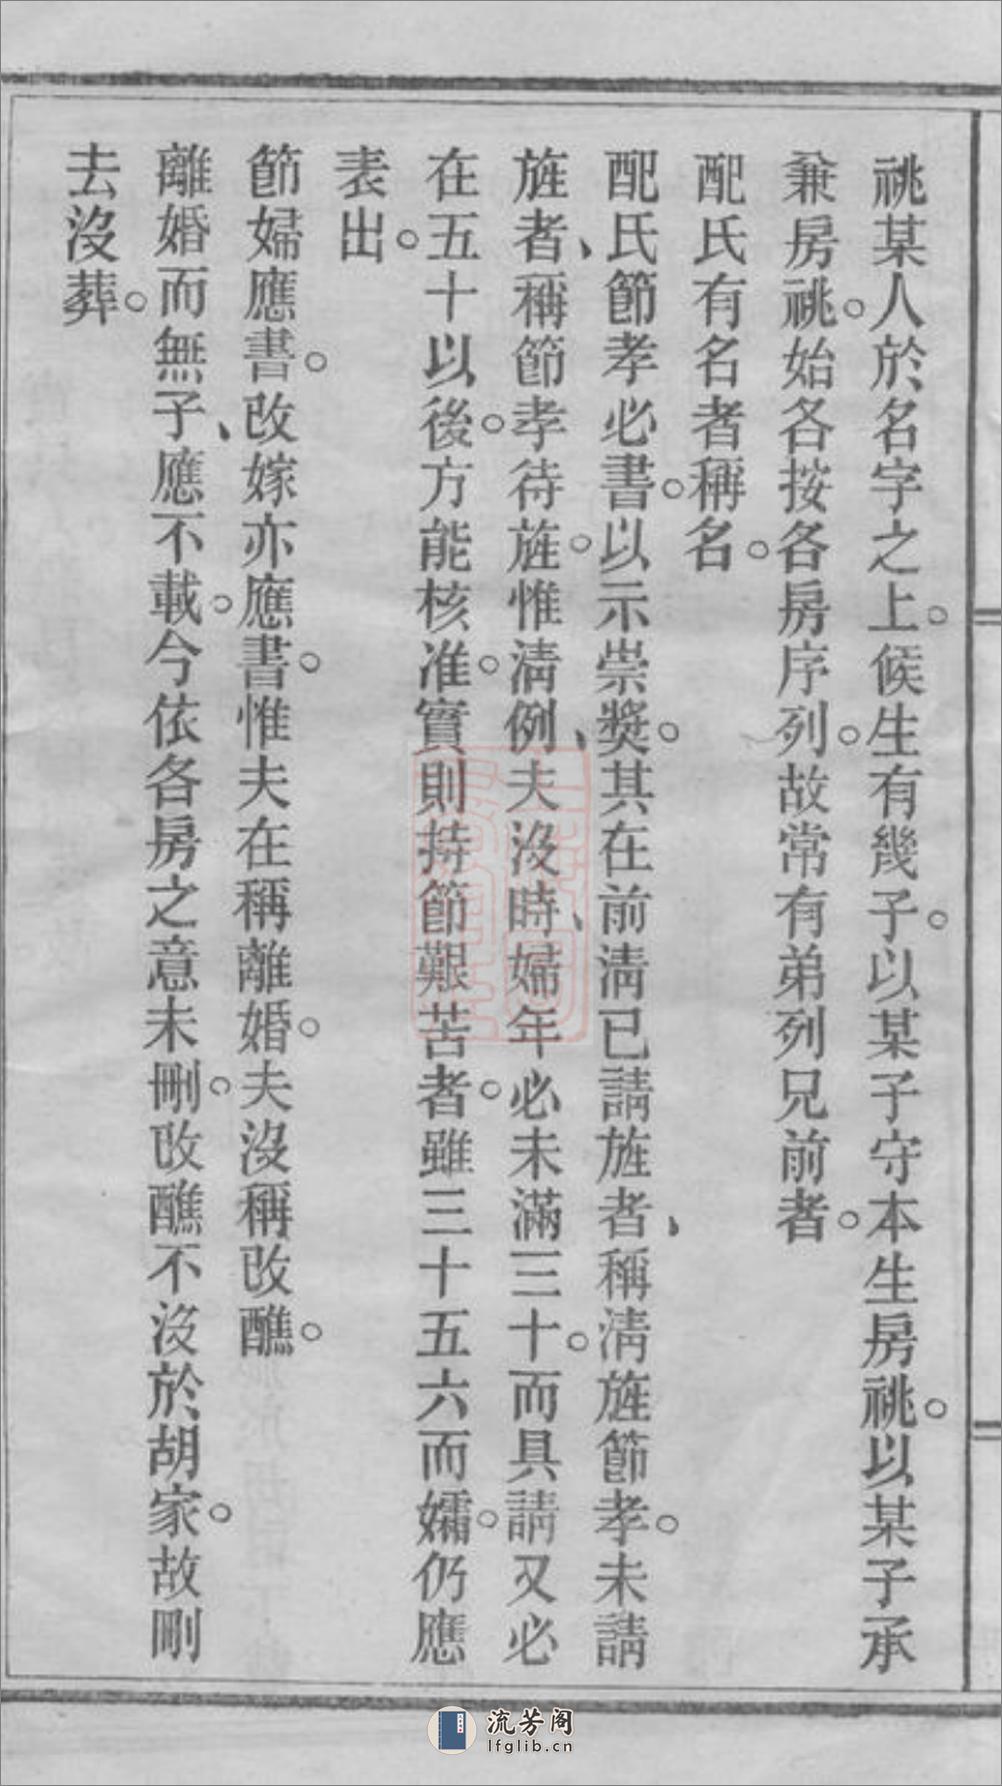 祧某人於名字之上。候生有幾子。以某子守本生房祧。以某子承
兼房祧。始各按各房序列。故常有弟列兄前者。
配氏有名者稱名。
配氏節孝必書。以示崇獎。其在前淸已請旌者、稱淸旌節孝。未請
旌者、稱節孝待旌。惟淸例、夫沒時、婦年必未滿三十。而具請又必
在五十以後。方能核准。實則持節艱苦者。雖三十五六而孀。仍應
表出。
節婦應書。改嫁亦應書。惟夫在稱離婚。夫沒稱改醮。
離婚而無子、應不載。今依各房之意未刪。改醮不沒於胡家。故刪
去沒葬。
流芳阁
lfglib.cn